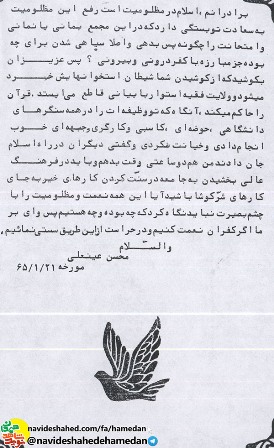 برادرانم، اسلام در مظلومیت است رفع این مظلومیت
به سعادت توبستگی دارد که در این مجمع بمانی یا نمانی
وامتحانت را چگونه پس بدهی واملا سپاهی شدن برای چه
بوده جز مبارزه با کفر درونی وبیرونی ؟ پس عزیزان
بکوشید که از کوشیدن شما شیطان استخوانهایش خرد
میشود وولایت فقیه استوار با بیانی قاطع می ایستد، قرآن
را حاکم میکند، آنگاه که تو وظیفه ات را در همه سنگرهای
دانشگاهی، حوزه ای، کاسبی وکارگری وجبهه ای خوب
انجام دادی وخیانت نکردی وگفتی دیگران در راه اسلام
جان دادند من هم دو ساعتی وقت بدهم وبا ید در فرهنگ
عالی بخشیدن به جامعه در سنت کردن کارهای خیر به جای
کارهای شر کوشا باشید آیا این همه نعمت و مظلومیت را با
چشم بصیرت نباید نگاه کرد که چه بوده وچه هستیم پس وای بر
ما اگر کفران نعمت کنیم ودر حراست از این طریق سستی نمائیم،
والسلام
محسن عینعلی
مورخه ۶۵/۱/۲۱
navideshahed.com/fa/hamedan
@navideshahedehamedan